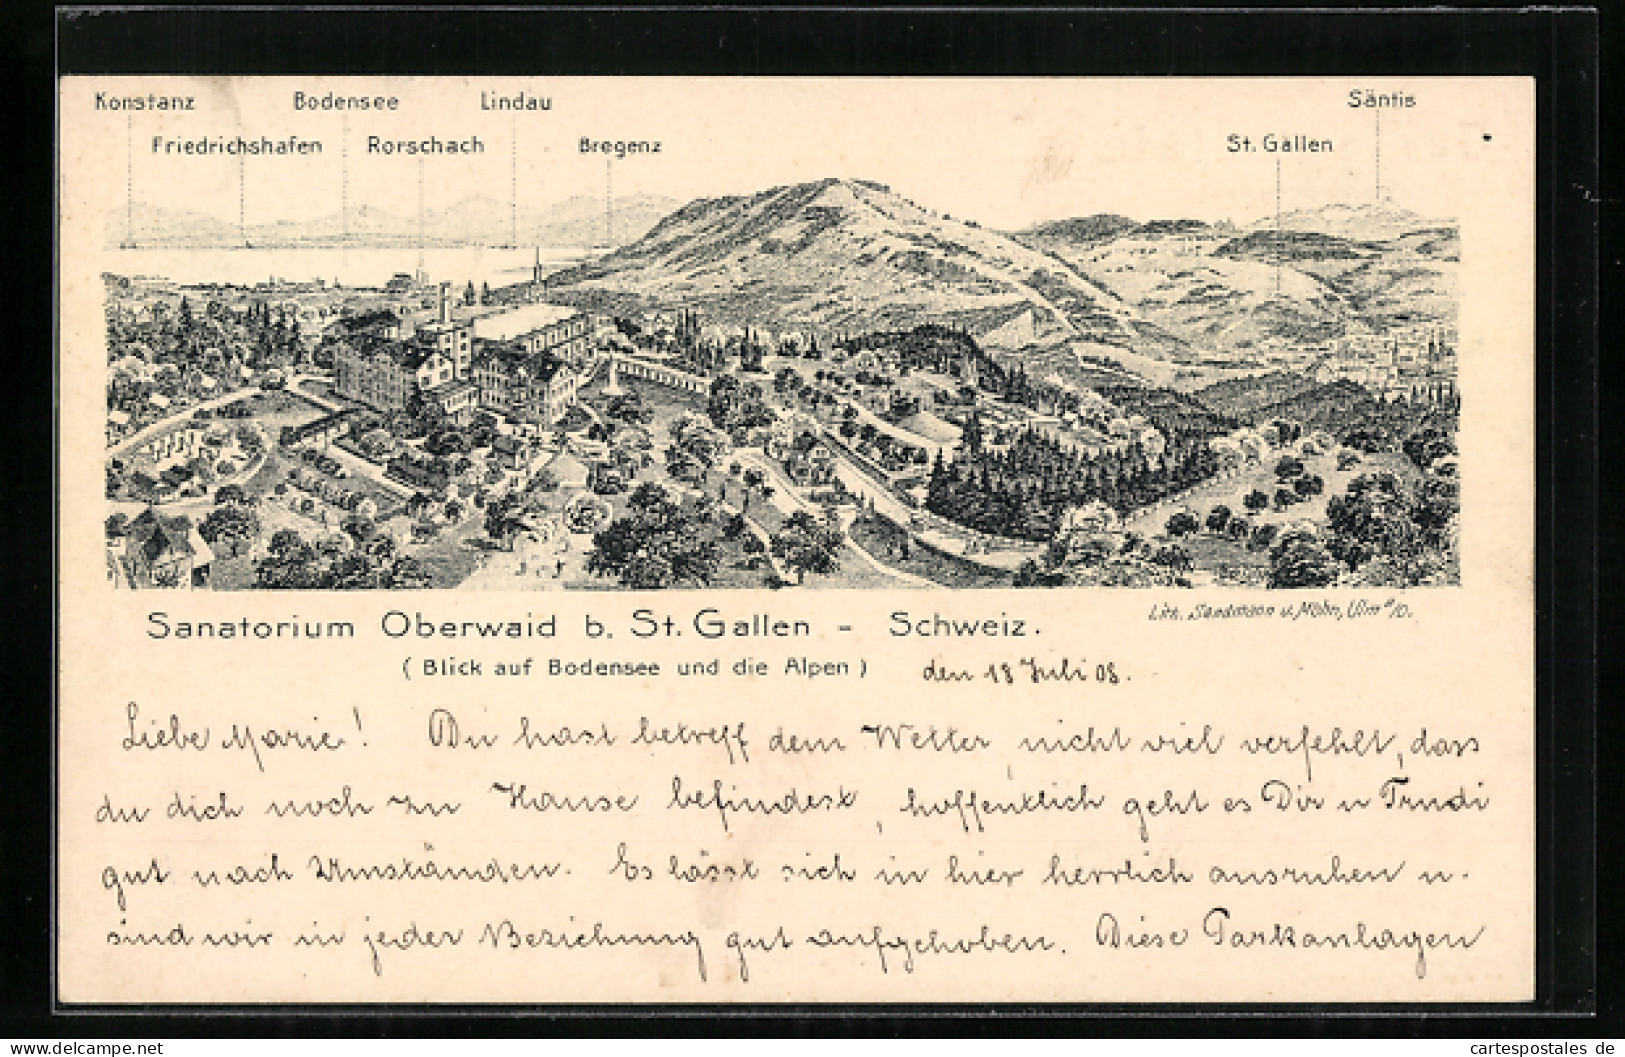 Konstanz Bodensee Lindau Säntis
Friedrichshafen Rorschach Bregenz St. Gallen
Sanatorium Oberwaid b. St. Gallen - Schweiz.
Lith. Sandmann u. Möhn, Ulm a/D.
(Blick auf Bodensee und die Alpen) den 18 Juli 08.
Liebe Marie! Du hast betreff dem Wetter nicht viel verfehlt, dass
du dich noch zu Hause befindest, hoffentlich geht es Dir u Trudi
gut nach Umständen. Es lässt sich in hier herrlich ausruhen u.
sind wir in jeder Beziehung gut aufgehoben. Diese Parkanlagen
www.cartespostales.de cartespostales de